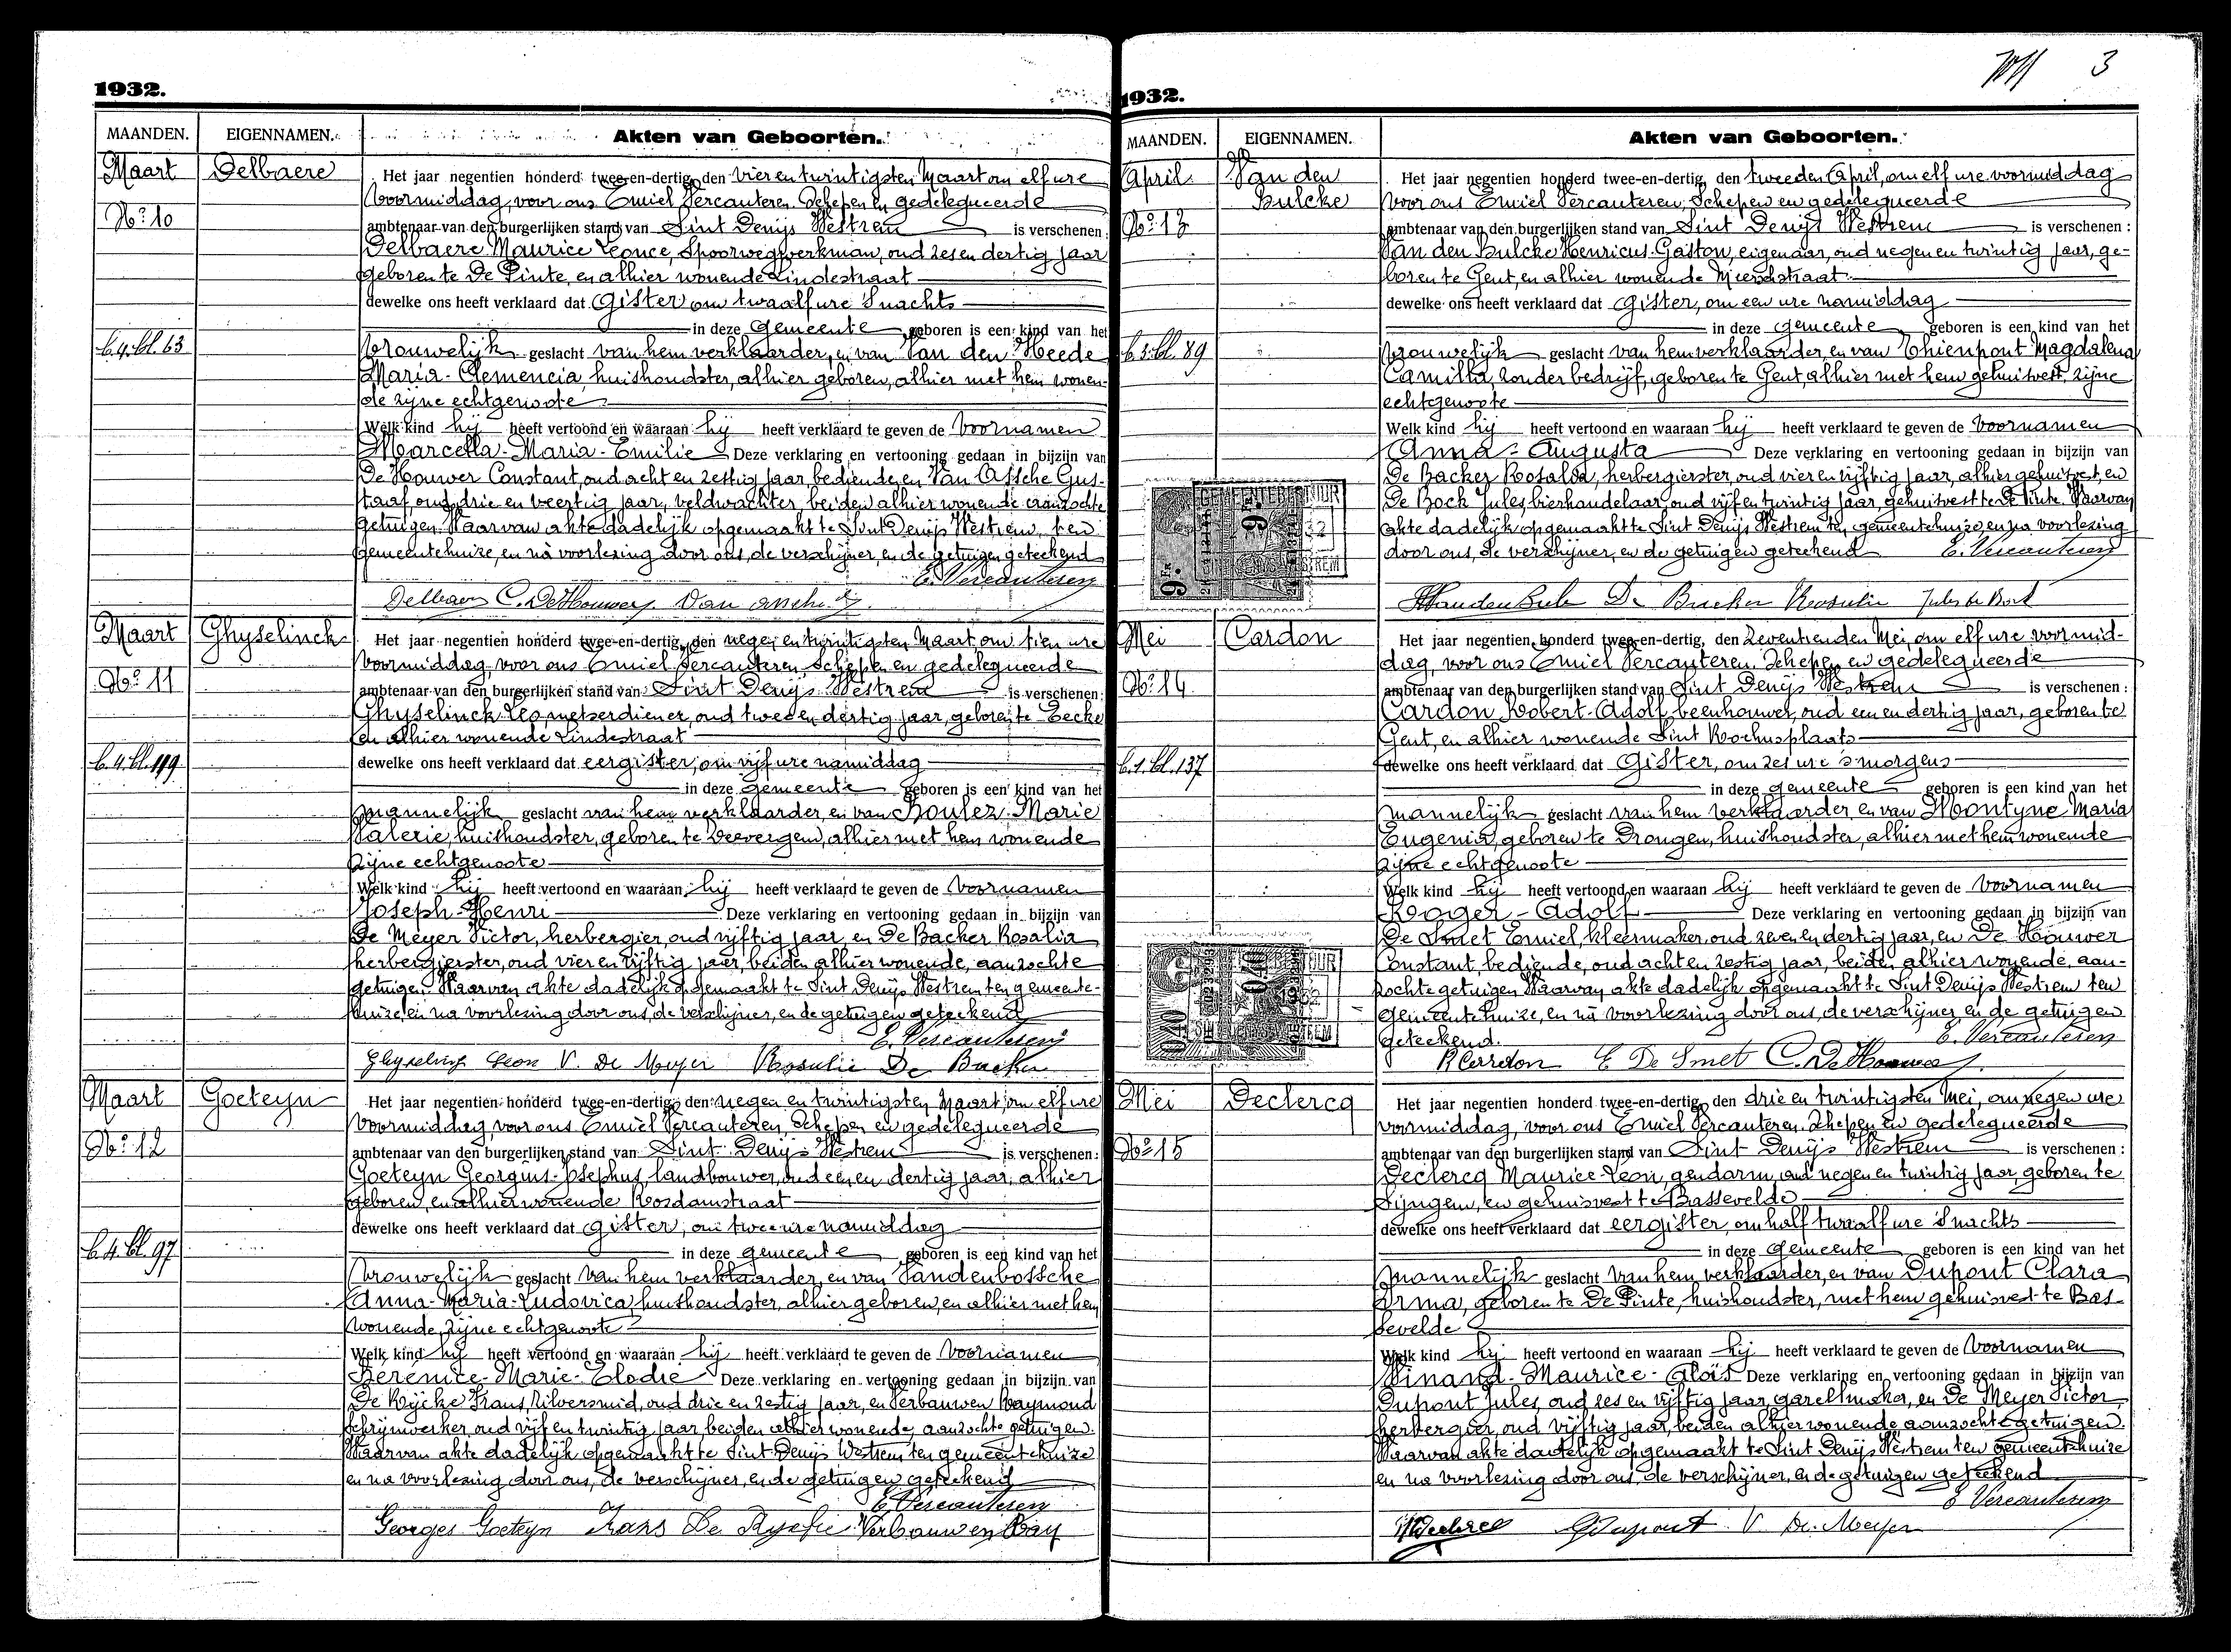 1932.
MAANDEN. EIGENNAMEN. Akten van Geboorten.
Maart Delbaere Het jaar negentien honderd twee-en-dertig, den vier en twintigsten Maart om elf ure
voormiddag, voor ons Emiel Vercauteren Schepen en gedelegueerde
No 10 ambtenaar van den burgerlijken stand van Sint Denijs Westrem is verschenen:
Delbaere Maurice Leonce, Spoorwegwerkman, oud zes en dertig jaar
geboren te De Pinte, en alhier wonende Lindestraat
dewelke ons heeft verklaard dat Gister om twaalf ure 's nachts
in deze Gemeente geboren is een kind van het
b.4.bl.63 Vrouwelijk geslacht van hem verklaarder, en van Van den Heede
Maria-Clemencia, huishoudster, alhier geboren, alhier met hem wonen-
de zijne echtgenoote
Welk kind hij heeft vertoond en waaraan hij heeft verklaard te geven de voornamen
Marcella-Maria-Emilie Deze verklaring en vertooning gedaan in bijzijn van
De Houwer Constant, oud acht en zestig jaar, bediende, en Van Assche Gus-
taaf, oud drie en veertig jaar, veldwachter, beiden alhier wonende aanzochte
getuigen. Waarvan akte dadelijk opgemaakt te Sint Denijs Westrem, ten
gemeentehuize, en na voorlezing door ons, de verschijner, en de getuigen geteekend
E. Vercauteren
Delbaere C. De Houwer Van Assche G.
Maart Ghyselinck Het jaar negentien honderd twee-en-dertig, den negen en twintigsten Maart om tien ure
voormiddag, voor ons Emiel Vercauteren Schepen en gedelegueerde
No 11 ambtenaar van den burgerlijken stand van Sint Denijs Westrem is verschenen:
Ghyselinck Leo, metserdiener, oud twee en dertig jaar, geboren te Eecke
en alhier wonende Lindestraat
b.4.bl.119 dewelke ons heeft verklaard dat eergister, om vijf ure namiddag
in deze gemeente geboren is een kind van het
mannelijk geslacht van hem verklaarder, en van Boulez Marie
Valerie, huishoudster, geboren te alhier met hem wonende
zijne echtgenoote
Welk kind hij heeft vertoond en waaraan hij heeft verklaard te geven de voornamen
Joseph-Henri Deze verklaring en vertooning gedaan in bijzijn van
De Meyer Victor, herbergier, oud vijftig jaar, en De Backer Rosalia
herbergierster, oud vier en vijftig jaar, beiden alhier wonende, aanzochte
getuigen. Waarvan akte dadelijk opgemaakt te Sint Denijs Westrem ten gemeente-
huize, en na voorlezing door ons, de verschijner, en de getuigen geteekend
E. Vercauteren
Ghyselinck Leon V. De Meyer Rosalie De Backer
Maart Goeteyn Het jaar negentien honderd twee-en-dertig, den negen en twintigsten Maart, om elf ure
voormiddag, voor ons Emiel Vercauteren, Schepen en gedelegueerde
No 12 ambtenaar van den burgerlijken stand van Sint Denijs Westrem is verschenen:
Goeteyn Georgius-Josephus, landbouwer, oud een en dertig jaar, alhier
geboren, en alhier wonende Rosdamstraat
dewelke ons heeft verklaard dat gister, om twee ure namiddag
b.4.bl.97 in deze gemeente geboren is een kind van het
Vrouwelijk geslacht van hem verklaarder, en van Vandenbossche
Anna-Maria-Ludovica, huishoudster, alhier geboren, en alhier met hem
wonende, zijne echtgenoote
Welk kind hij heeft vertoond en waaraan hij heeft verklaard te geven de voornamen
Berenice-Marie-Elodie Deze verklaring en vertooning gedaan in bijzijn van
De Rycke Frans, zilversmid, oud drie en zestig jaar, en Verbauwen Raymond
schrijnwerker, oud vijf en twintig jaar beiden alhier wonende, aanzochte getuigen.
Waarvan akte dadelijk opgemaakt te Sint Denijs Westrem ten gemeentehuize
en na voorlezing door ons, de verschijner, en de getuigen geteekend
E. Vercauteren
Georges Goeteyn Frans De Rycke Verbauwen Ray
3
1932.
MAANDEN. EIGENNAMEN. Akten van Geboorten.
April Van den Het jaar negentien honderd twee-en-dertig, den tweeden April, om elf ure voormiddag
Bulcke voor ons Emiel Vercauteren, Schepen en gedelegueerde
No 13 ambtenaar van den burgerlijken stand van Sint Denijs Westrem is verschenen:
Van den Bulcke Henricus-Gaston, eigenaar, oud negen en twintig jaar, ge-
boren te Gent, en alhier wonende Meerschstraat
dewelke ons heeft verklaard dat Gister, om een ure namiddag
in deze gemeente geboren is een kind van het
b.3.bl.89 Vrouwelijk geslacht van hem verklaarder, en van Thienpont Magdalena
Camilla, zonder bedrijf, geboren te Gent, alhier met hem gehuisvest, zijne
echtgenoote
Welk kind hij heeft vertoond en waaraan hij heeft verklaard te geven de voornamen
Anna-Augusta Deze verklaring en vertooning gedaan in bijzijn van
De Backer Rosalia, herbergierster, oud vier en vijftig jaar, alhier gehuisvest, en
De Bock Jules, bierhandelaar, oud vijf en twintig jaar, gehuisvest te De Pinte. Waarvan
akte dadelijk opgemaakt te Sint Denijs Westrem ten gemeentehuize, en na voorlezing
door ons, de verschijner, en de getuigen geteekend E. Vercauteren
De Backer Rosalie Jules De Bock
Mei Cardon Het jaar negentien honderd twee-en-dertig, den zeventienden Mei, om elf ure voormid-
dag, voor ons Emiel Vercauteren, Schepen en gedelegueerde
No 14 ambtenaar van den burgerlijken stand van Sint Denijs Westrem is verschenen:
Cardon Robert-Adolf, beenhouwer, oud een en dertig jaar, geboren te
Gent, en alhier wonende Sint Rochusplaats
b.1.bl.137 dewelke ons heeft verklaard dat Gister, om zes ure 's morgens
in deze gemeente geboren is een kind van het
mannelijk geslacht van hem verklaarder, en van Montyne Maria
Eugenia, geboren te Drongen, huishoudster, alhier met hem wonende
zijne echtgenoote
Welk kind hij heeft vertoond en waaraan hij heeft verklaard te geven de voornamen
Roger-Adolf Deze verklaring en vertooning gedaan in bijzijn van
De Smet Emiel, kleermaker, oud zeven en dertig jaar, en De Houwer
Constant, bediende, oud acht en zestig jaar, beiden alhier wonende, aan-
zochte getuigen. Waarvan akte dadelijk opgemaakt te Sint Denijs Westrem ten
Gemeentehuize, en na voorlezing door ons, de verschijner, en de getuigen
geteekend. E. Vercauteren
R Cardon E De Smet C. De Houwer
Mei Declercq Het jaar negentien honderd twee-en-dertig, den drie en twintigsten Mei, om negen ure
voormiddag, voor ons Emiel Vercauteren, Schepen en gedelegueerde
No 15 ambtenaar van den burgerlijken stand van Sint Denijs Westrem is verschenen:
Declercq Maurice-Leon, gendarm, oud negen en twintig jaar, geboren te
Zijngem, en gehuisvest te Bassevelde
dewelke ons heeft verklaard dat eergister, om half twaalf ure 's nachts
in deze Gemeente geboren is een kind van het
mannelijk geslacht van hem verklaarder, en van Dupont Clara
Irma, geboren te De Pinte, huishoudster, met hem gehuisvest te Bas-
sevelde
Welk kind hij heeft vertoond en waaraan hij heeft verklaard te geven de voornamen
Winand-Maurice-Aloïs Deze verklaring en vertooning gedaan in bijzijn van
Dupont Jules, oud zes en vijftig jaar, gareelmaker, en De Meyer Victor,
herbergier, oud vijftig jaar, beiden alhier wonende aanzochte getuigen.
Waarvan akte dadelijk opgemaakt te Sint Denijs Westrem ten gemeentehuize
en na voorlezing door ons, de verschijner, en de getuigen geteekend
E Vercauteren
Dupont V. De Meyer